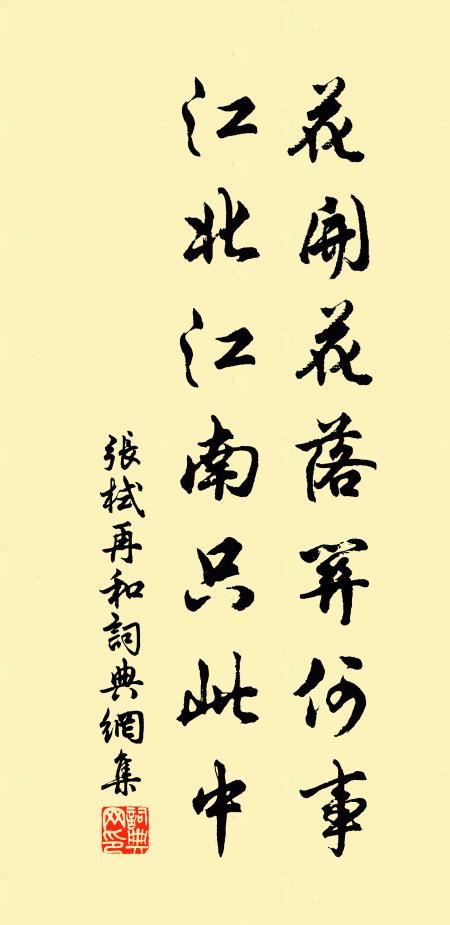 花開花落關何事
江北江南只此中
張栻再和詞典網集
詞典網印